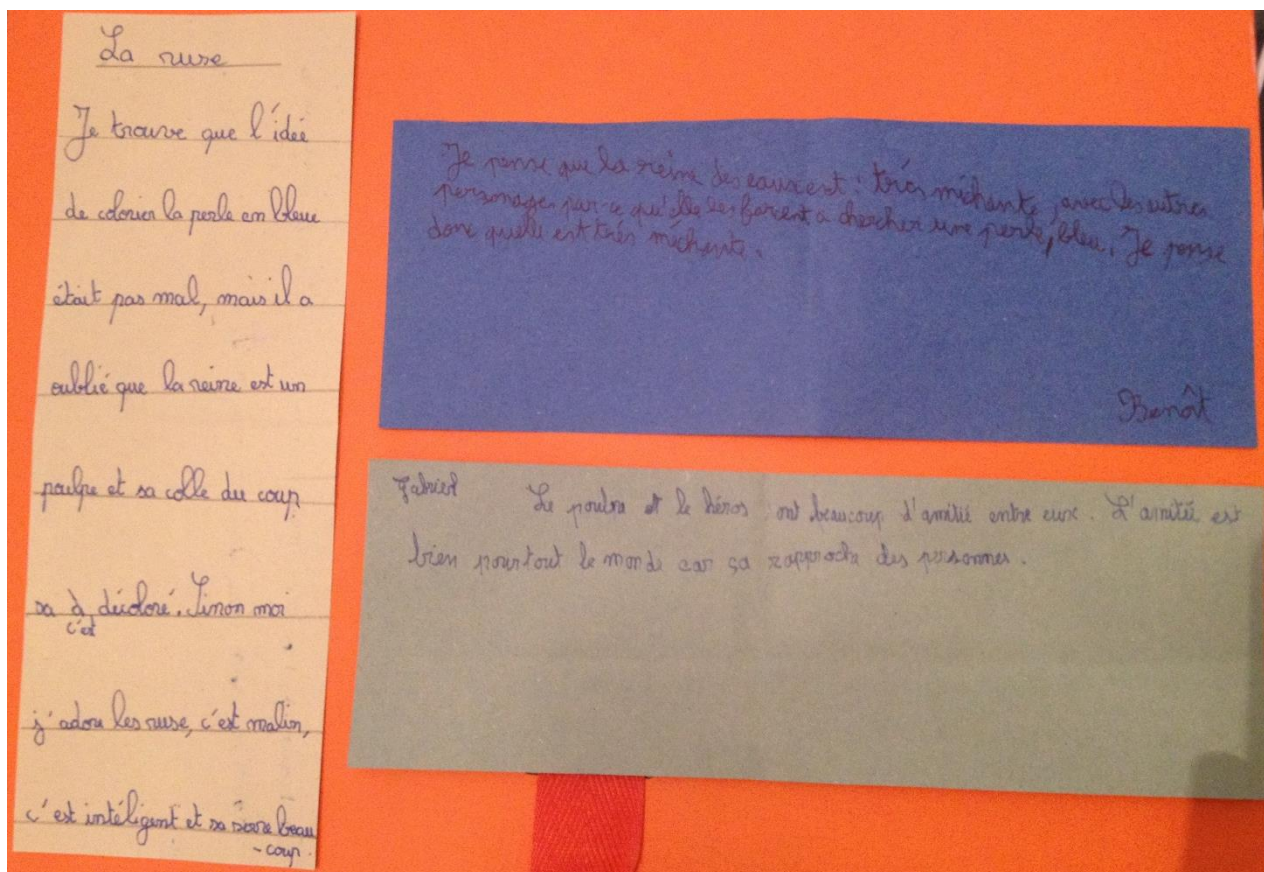 La ruse
Je trouve que l'idée
de colorier la perle en bleue
était pas mal, mais il a
oublié que la reine est un
poulpe et sa colle du coup
sa à décoloré. Sinon moi
c'est
j'adore les ruse, c'est malin,
c'est intéligent et sa beau
-coup.
Je pense que la reine des eaux est : très méchante, avec les autres
personages par ce qu'elle les forcent a chercher une perle, bleu. Je pense
donc quelle est très méchante.
Benoît
Le poulpe et le héros ont beaucoup d'amitié entre eux. L'amitié est
bien pour tout le monde car ça rapproche des personnes.